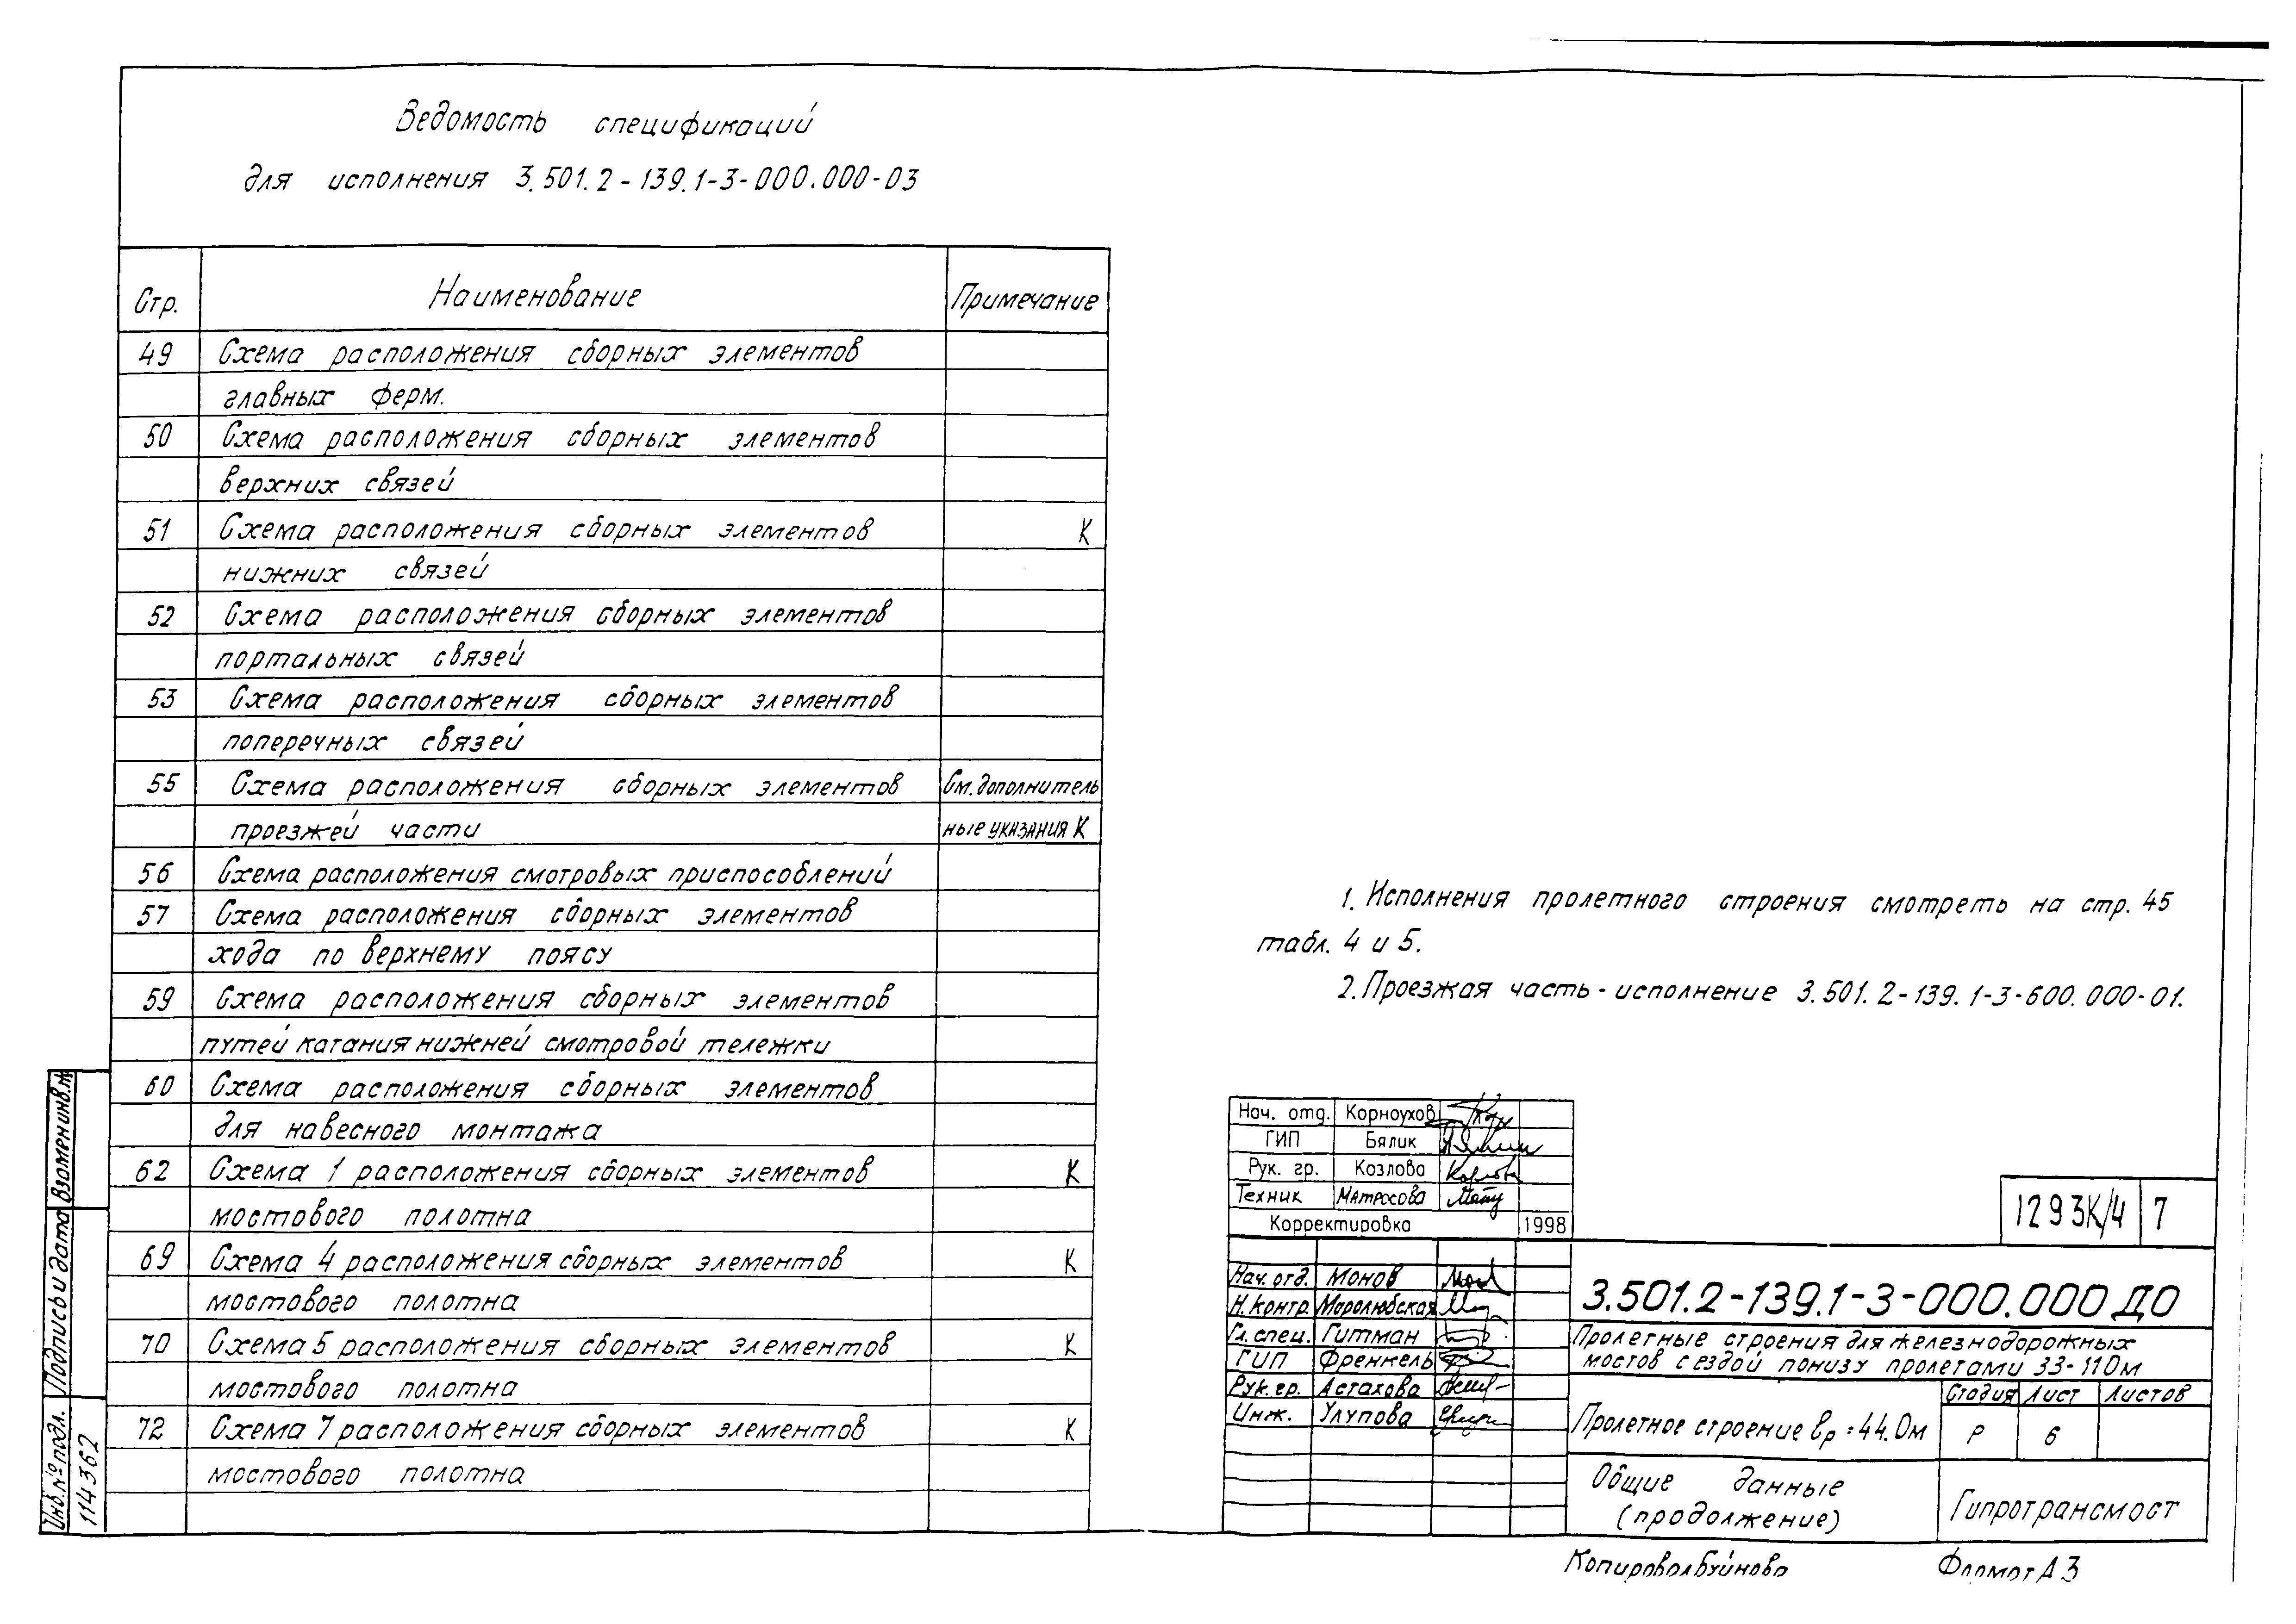 Ведомость спецификаций
для исполнения 3.501.2-139.1-3-000.000-03
Стр. Наименование Примечание
49 Схема расположения сборных элементов
главных ферм.
50 Схема расположения сборных элементов
верхних связей
51 Схема расположения сборных элементов К
нижних связей
52 Схема расположения сборных элементов
портальных связей
53 Схема расположения сборных элементов
поперечных связей
55 Схема расположения сборных элементов См. дополнитель
проезжей части ные указания К
56 Схема расположения смотровых приспособлений
57 Схема расположения сборных элементов
хода по верхнему поясу
59 Схема расположения сборных элементов
путей катания нижней смотровой тележки
60 Схема расположения сборных элементов
для навесного монтажа
62 Схема 1 расположения сборных элементов К
мостового полотна
69 Схема 4 расположения сборных элементов К
мостового полотна
70 Схема 5 расположения сборных элементов К
мостового полотна
72 Схема 7 расположения сборных элементов К
мостового полотна
1. Исполнения пролетного строения смотреть на стр. 45
табл. 4 и 5.
2. Проезжая часть - исполнение 3.501.2-139.1-3-600.000-01.
Нач. отд. Корноухов
ГИП Бялик
Рук. гр. Козлова
Техник Матросова
Корректировка 1998
1293К/4 7
Нач. отд. Монов
Н. контр. Маролюбская
Гл. спец. Гитман
ГИП Френкель
Рук. гр. Астахова
Инж. Улупова
3.501.2-139.1-3-000.000 ДО
Пролетные строения для железнодорожных
мостов с ездой понизу пролетами 33-110м
Пролетное строение ℓр = 44.0м
Стадия Лист Листов
Р 6
Общие данные
(продолжение)
Гипротрансмост
Копировал Буйнова Формат А3
Взамен инв. №
Подпись и дата
Инв. № подл.
114362